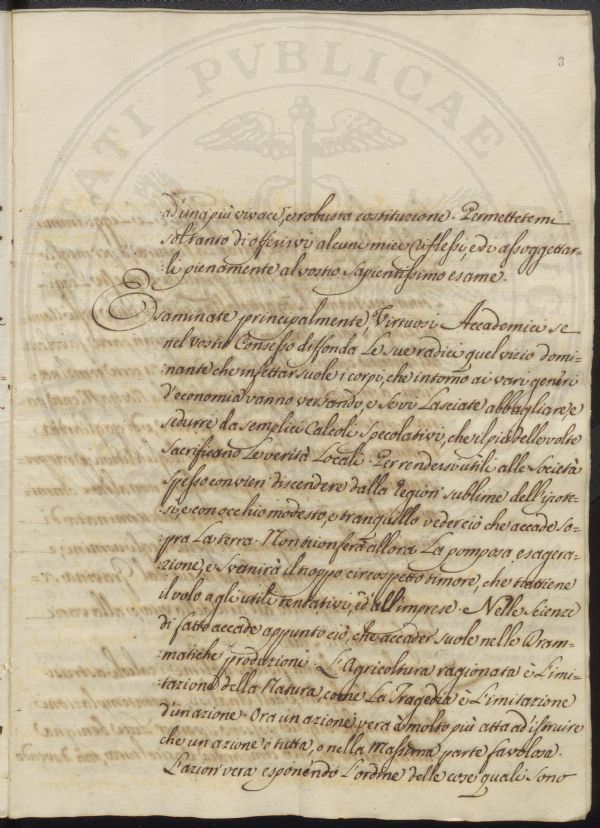 PVBLICAE
3
d'una più vivace, e robusta costituzione. Permettetemi
soltanto di offerirvi alcuni miei riflessi, e di assoggettar-
:li pienamente al vostro Sapientissimo esame.
Esaminate principalmente Virtuosi Accademici se
nel Vostro Consesso diffonda le sue radici quel vizio domi-
:nante che infettar suole i corpi, che intorno ai varj generi
d'economia vanno versando, e se vi lasciate abbagliare e
sedurre da semplici Calcoli Specolativi, che il più delle volte
sacrificano le verità locali. Per rendersi utili alle Società
spesso convien discendere dalla region sublime dell'ipote-
:si, e con occhio modesto, e tranquillo veder ciò che accade so-
:pra la terra. Non trionferà allora la pomposa esagera-
:zione, e svanirà il troppo circospetto timore, che trattiene
il volo agli utili tentativi, ed all'imprese. Nelle Scienze
di fatto accade appunto ciò, che accader suole nelle Dram-
:matiche produzioni. L'Agricoltura ragionata è l'imi-
:tazione della Natura, come la Tragedia è l'imitazione
d'un azione. Ora un azione vera è molto più atta ad istruire
che un azione o tutta, o nella Massima parte favolosa.
L'azion vera esponendo l'ordine delle cose quali sono